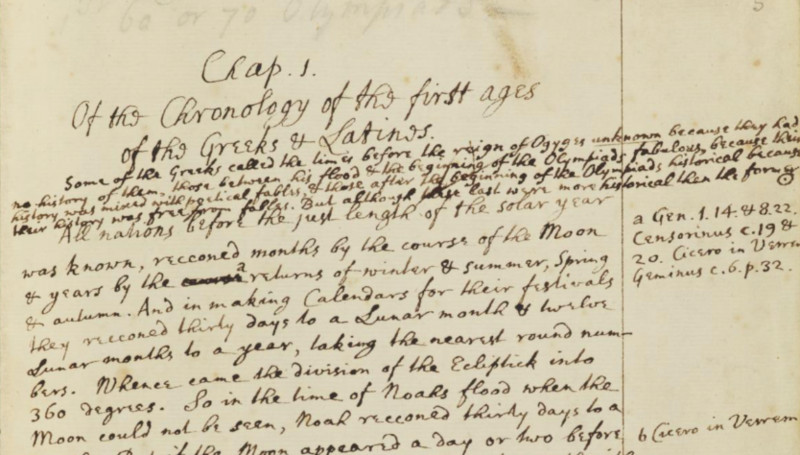 60 or 70 Olympiads
Chap. 1.
Of the Chronology of the first ages
of the Greeks & Latines.
Some of the Greeks called the times before the reign of Ogyges unknown because they had
no history of them, those between his flood & the beginning of the Olympiads fabulous because their
history was mixed with poetical fables, & those after the beginning of the Olympiads historical because
their history was free from fables. But although these last were more historical then the former
All nations before the just length of the solar year
was known, reccon̄ed months by the course of the Moon
& years by the returns of winter & summer, Spring
& autumn. And in making Calendars for their festivals
they recconed thirty days to a Lunar month & twelve
Lunar months to a year, taking the nearest round num-
bers. Whence came the division of the Ecliptick into
360 degrees. So in the time of Noahs flood when the
Moon could not be seen, Noah recconed thirty days to a
if the Moon appeared a day or two before
a Gen. 1. 14. & 8. 22.
Censorinus c. 19 &
20. Cicero in Verrem
Geminus c. 6. p. 32.
b Cicero in Verrem